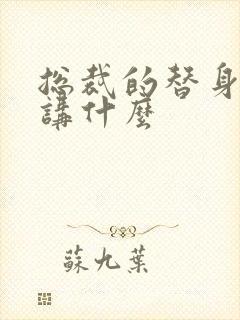 总裁的替身
講什麼
蘇九葉